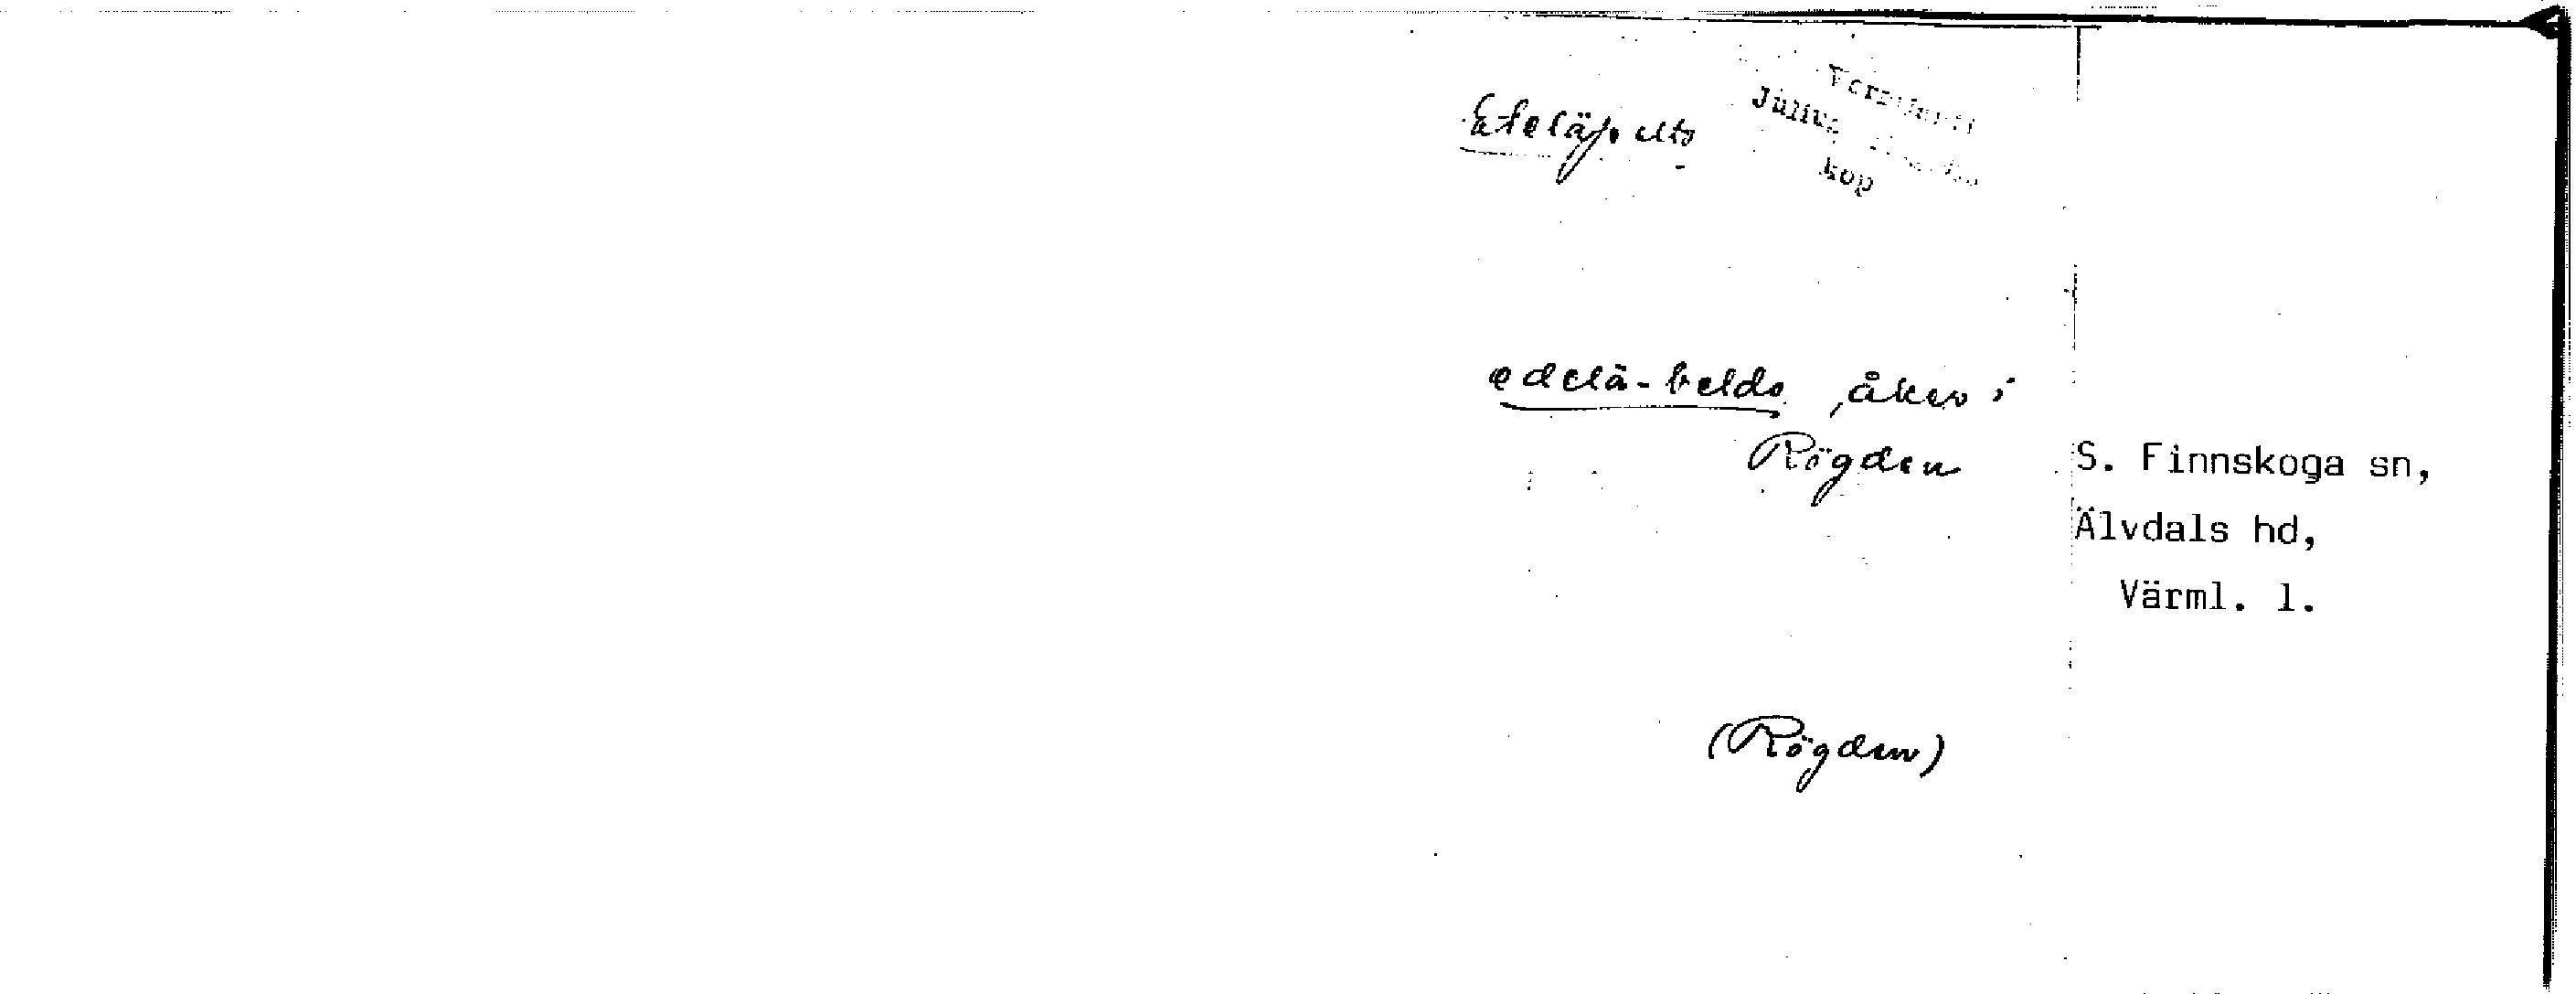 Eteläpelto
Julius
kop
edelä-beldo, åker i
Rögden
S. Finnskoga sn,
Älvdals hd,
Värml. l.
(Rögden)